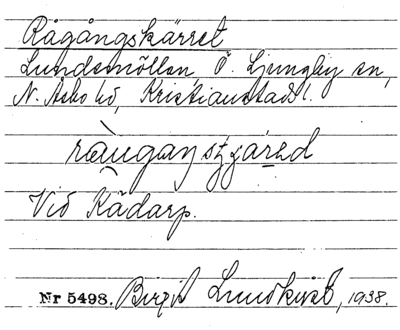 Rågångskärret
Lundemöllan, Ö. Ljungby sn,
N. Åsbo hd, Kristianstads l.
Vid Rådarp.
Nr 5498. Birgit Lundkvist, 1938.